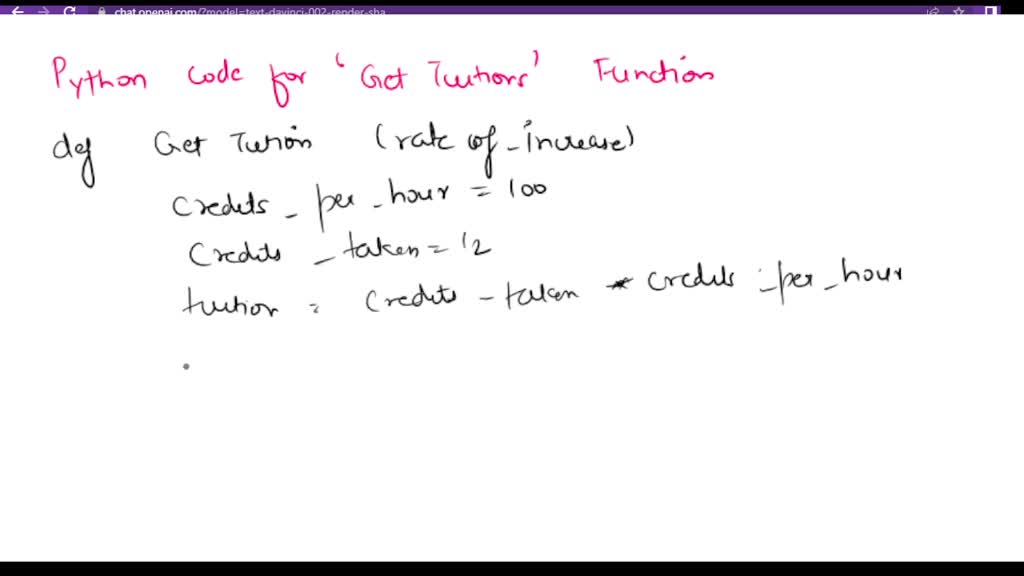 chat.openai.com/?model=text-davinci-002-render-sha
Python code for 'Get Tutions' Function
def Get Tution (rate of_increase)
credits_per_hour = 100
Credits_taken = 12
tution = credits_taken * credits_per_hour